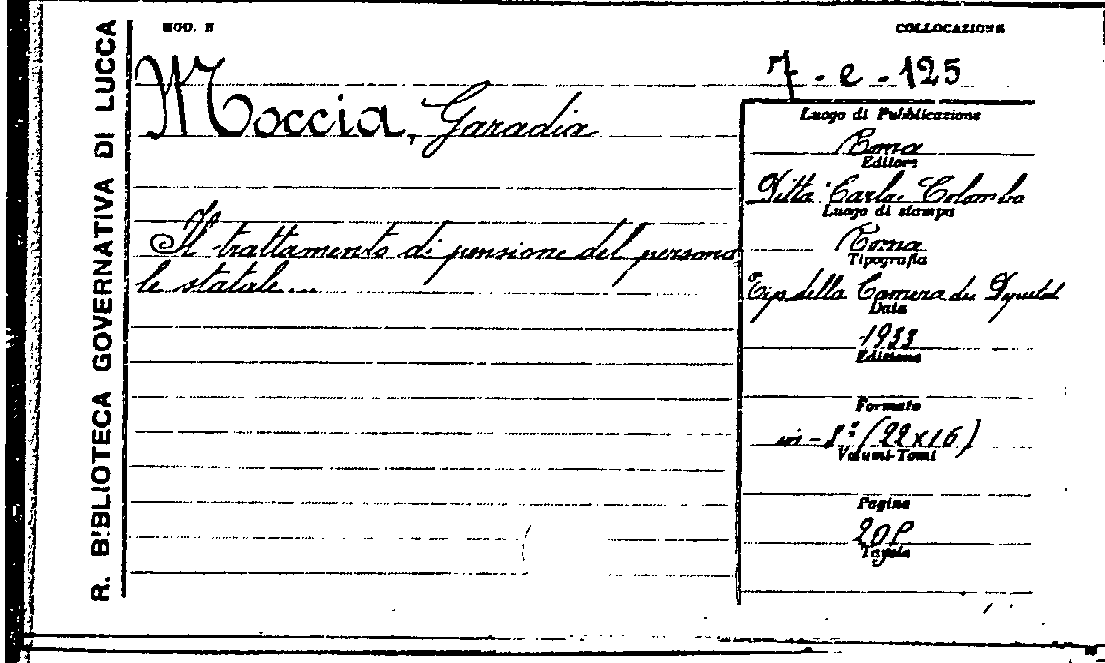 R. BIBLIOTECA GOVERNATIVA DI LUCCA
MOD. N
COLLOCAZIONE
7 - e - 125
Moccia, Garadia
Il trattamento di pensione del persona
le statale...
Luogo di Pubblicazione
Roma
Editore
Ditta Carlo Colombo
Luogo di stampa
Roma
Tipografia
Tip della Camera dei Deputati
Data
1933
Edizione
Formato
in - 8º (22x16)
Volumi-Tomi
Pagine
Tavole